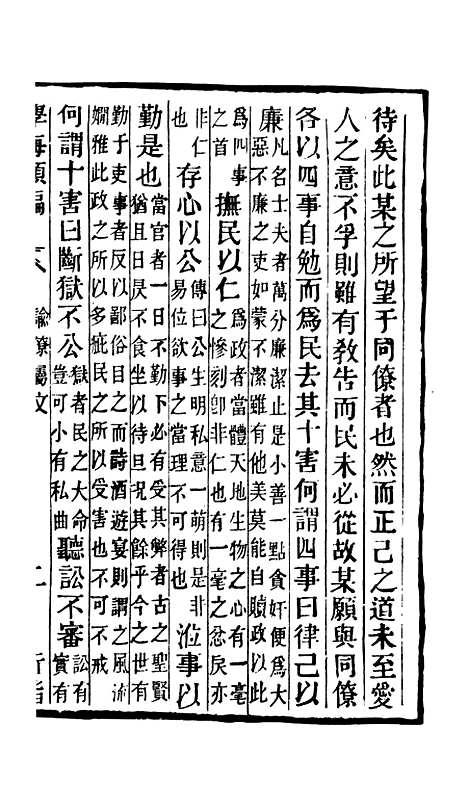 待矣此某之所望于同僚者也然而正己之道未至愛
人之意不孚則雖有教告而民未必從故某願與同僚
各以四事自勉而爲民去其十害何謂四事曰律己以
廉凡名士夫者萬分廉潔止是小善一點貪奸便爲大
惡不廉之吏如蒙不潔雖有他美莫能自贖政以此
爲四事
之首
撫民以仁爲政者當體天地生物之心有一毫
之慘刻卽非仁也有一毫之忿戾亦
非仁
也
存心以公傳曰公生明私意一萌則是非
易位欲事之當理不可得也
涖事以
勤是也當官者一日不勤下必有受其弊者古之聖賢
猶且日昃不食坐以待旦況其餘乎今之世有
勤于吏事者反以鄙俗目之而詩酒遊宴則謂之風流
嫺雅此政之所以多疵民之所以受害也不可不戒
何謂十害曰斷獄不公獄者民之大命
豈可小有私曲
聽訟不審訟有
實有
學海類編 諭僚屬文 二